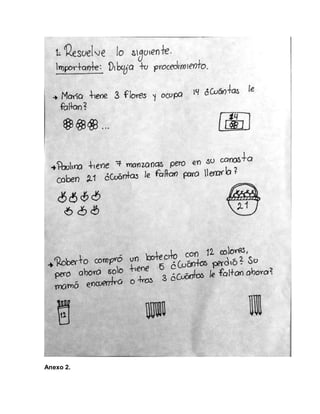 1. Resuelve lo siguiente.
Importante: Dibuja tu procedimiento.
→ María tiene 3 flores y ocupa 14 ¿Cuántas le
faltan?
...
14
→ Paulina tiene 7 manzanas pero en su canasta
caben 21 ¿Cuántas le faltan para llenarla?
21
→ Roberto compró un botecito con 12 colores,
pero ahora solo tiene 5 ¿Cuántos perdió? Su
mamá encuentra otros 3 ¿Cuántos le faltan ahora?
12
Anexo 2.